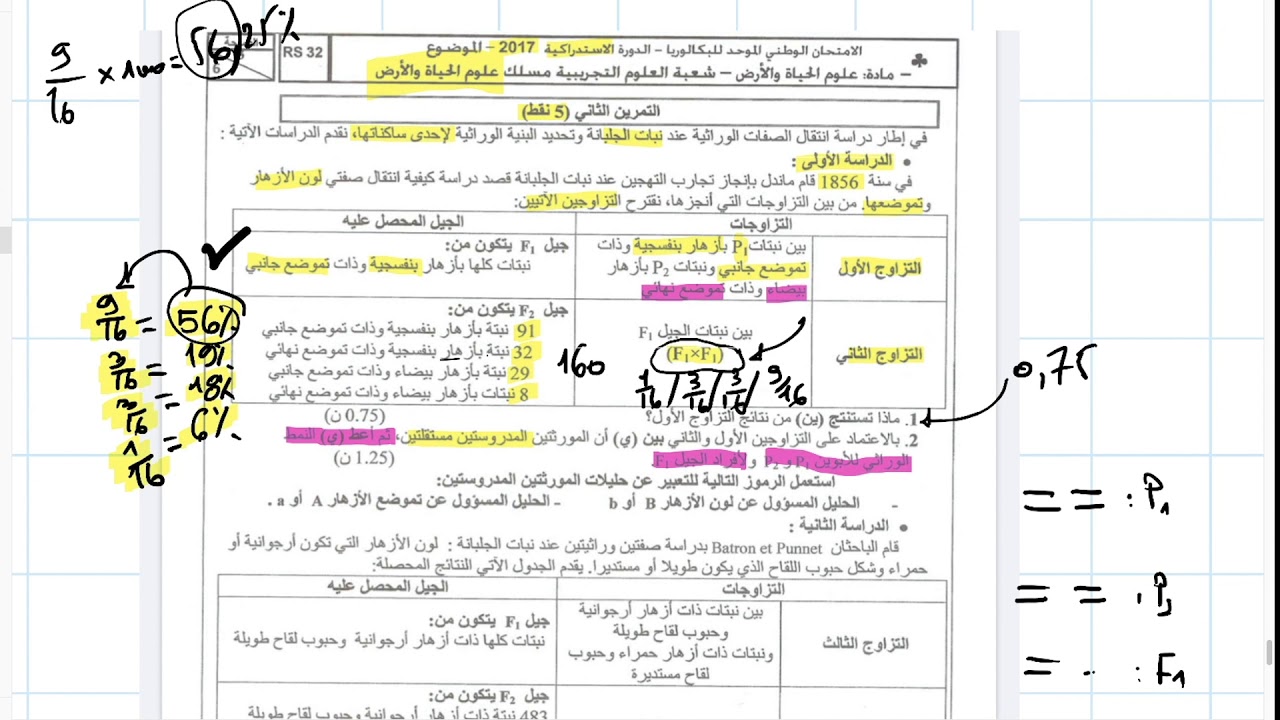 9/16 × 100 = 56,25%
RS 32
الامتحان الوطني الموحد للبكالوريا – الدورة الاستدراكية 2017 – الموضوع
– مادة: علوم الحياة والأرض – شعبة العلوم التجريبية مسلك علوم الحياة والأرض
التمرين الثاني (5 نقط)
في إطار دراسة انتقال الصفات الوراثية عند نبات الجلبانة وتحديد البنية الوراثية لإحدى ساكناتها، نقدم الدراسات الآتية :
• الدراسة الأولى :
في سنة 1856 قام ماندل بإنجاز تجارب التهجين عند نبات الجلبانة قصد دراسة كيفية انتقال صفتي لون الأزهار
وتموضعها. من بين التزاوجات التي أنجزها، نقترح التزاوجين الآتيين:
التزاوجات
الجيل المحصل عليه
التزاوج الأول
بين نبتات P1 بأزهار بنفسجية وذات
تموضع جانبي ونبتات P2 بأزهار
بيضاء وذات تموضع نهائي
جيل F1 يتكون من:
نبتات كلها بأزهار بنفسجية وذات تموضع جانبي
التزاوج الثاني
بين نبتات الجيل F1
(F1×F1)
جيل F2 يتكون من:
91 نبتة بأزهار بنفسجية وذات تموضع جانبي
32 نبتة بأزهار بنفسجية وذات تموضع نهائي
29 نبتة بأزهار بيضاء وذات تموضع جانبي
8 نبتات بأزهار بيضاء وذات تموضع نهائي
9/16 = 56%
3/16 = 19%
3/16 = 18%
1/16 = 6%
160
1/16 / 3/16 / 3/16 / 9/16
0,75
1. ماذا تستنتج (ين) من نتائج التزاوج الأول؟ (0.75 ن)
2. بالاعتماد على التزاوجين الأول والثاني بين (ي) أن المورثتين المدروستين مستقلتين، ثم أعط (ي) النمط
الوراثي للأبوين P1 و P2 ولأفراد الجيل F1. (1.25 ن)
استعمل الرموز التالية للتعبير عن حليلات المورثتين المدروستين:
- الحليل المسؤول عن لون الأزهار B أو b - الحليل المسؤول عن تموضع الأزهار A أو a .
• الدراسة الثانية :
قام الباحثان Batron et Punnet بدراسة صفتين وراثيتين عند نبات الجلبانة : لون الأزهار التي تكون أرجوانية أو
حمراء وشكل حبوب اللقاح الذي يكون طويلا أو مستديرا. يقدم الجدول الآتي النتائج المحصلة:
التزاوجات
الجيل المحصل عليه
التزاوج الثالث
بين نبتات ذات أزهار أرجوانية
وحبوب لقاح طويلة
ونبتات ذات أزهار حمراء وحبوب
لقاح مستديرة
جيل F1 يتكون من:
نبتات كلها ذات أزهار أرجوانية وحبوب لقاح طويلة
جيل F2 يتكون من:
483 نبتة ذات أزهار أرجوانية وحبوب لقاح طويلة
= = : P1
= = : P2
= - : F1